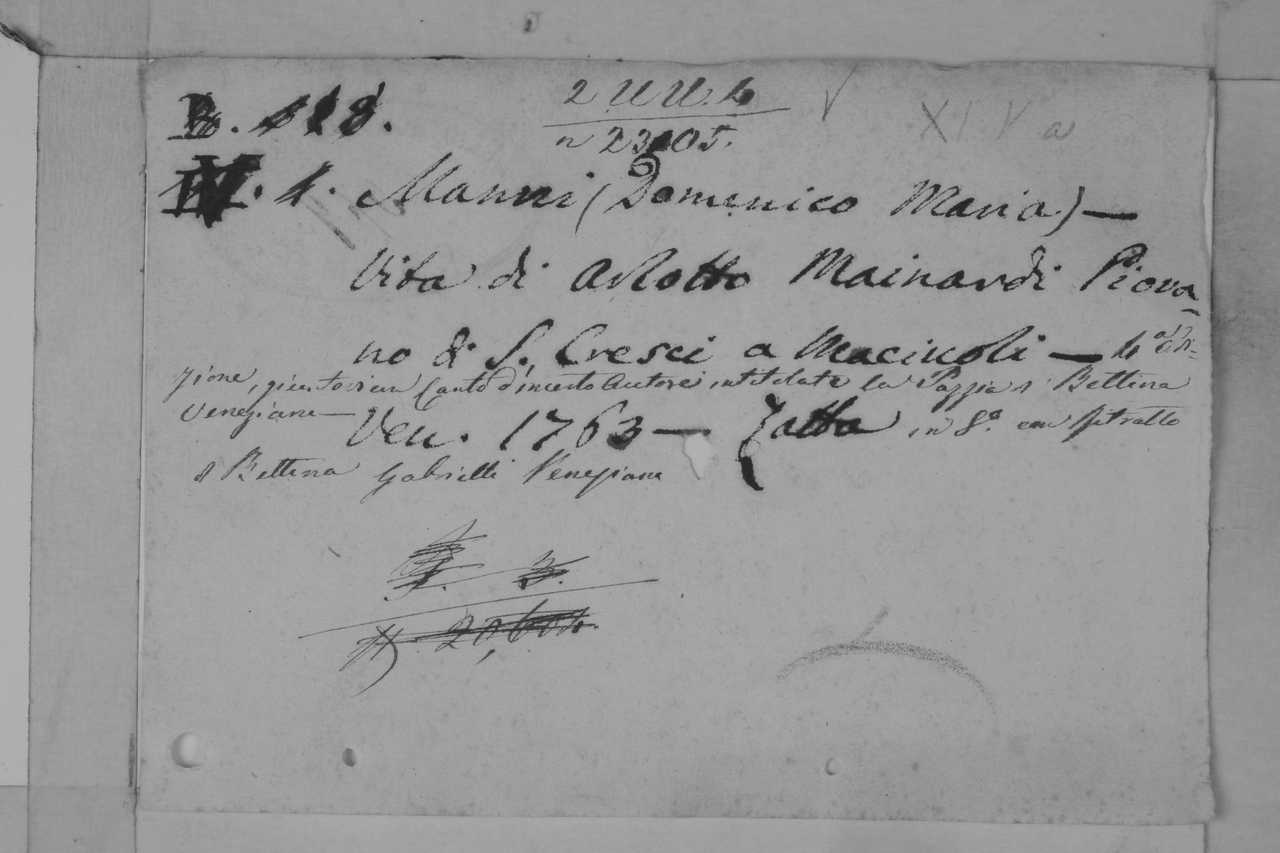 B. 118.
2 U U. 4
XIV a
n 23205.
IV. 4. Manni (Domenico Maria) —
Vita di Arlotto Mainardi Piova-
no di S. Cresci a Maciuoli — 4a Edi-
zione, giuntovi un Canto d'incerto Autore intitolato la Pazzia di Bettina
Veneziana —
Ven. 1763 — Zatta in 8.o con ritratto
di Bettina Gabrielli Veneziana
3.